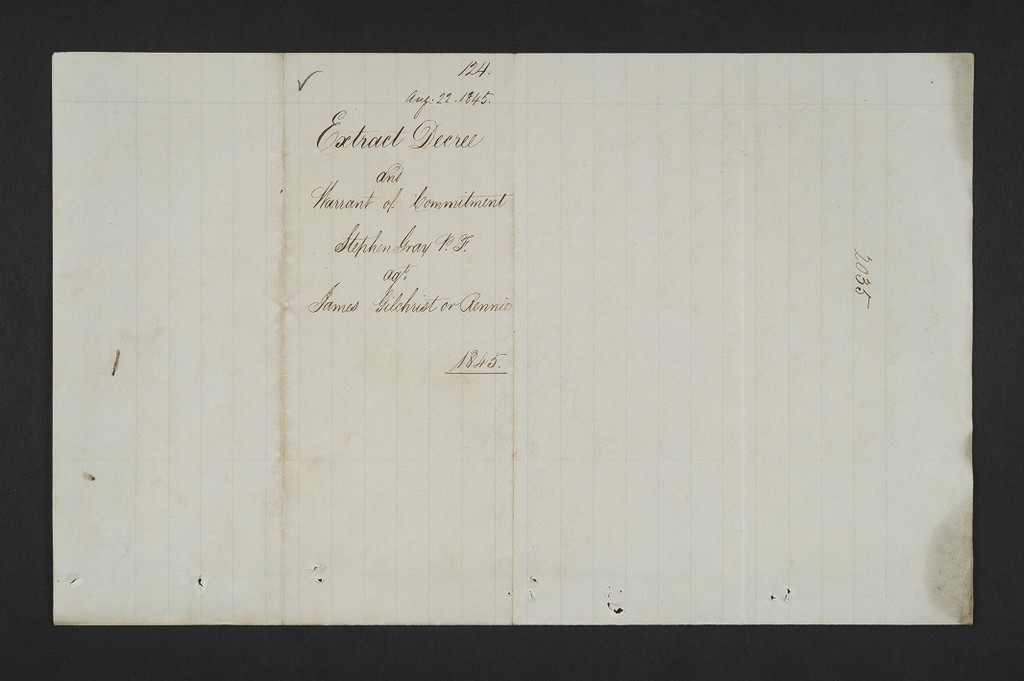 124.
Aug. 22. 1845.
Extract Decree
and
Warrant of Commitment
Stephen Gray P. F.
agt.
James Gilchrist or Rennie
1845.
2035